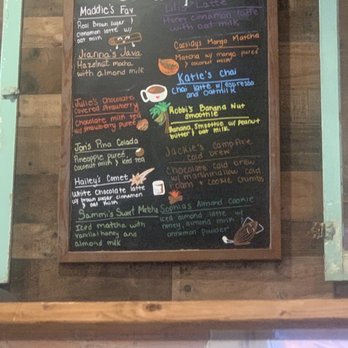 Maddie's Fav
Real Brown Sugar &
cinnamon latte w/
oat milk
Jeanna's Java
Hazelnut mocha
with almond milk
Julie's Chocolate
Covered Strawberry
Chocolate milk tea
w/ strawberry pureé
Jon's Pina Colada
Pineapple pureé,
coconut milk & iced tea
Hailey's Comet
White chocolate latte
w/ brown sugar cinnamon
& oat milk
Sammi's Sweet Matcha
Iced matcha with
vanilla honey and
almond milk
Latte
Honey cinnamon latte
with oat milk
Cassidy's Mango Matcha
Matcha w/ mango pureé
& coconut milk
Katie's Chai
Chai latte w/ espresso
and oatmilk
Robbi's Banana Nut
Smoothie
Banana Smoothie w/ peanut
butter & oat milk
Jackie's campfire
cold brew
Chocolate cold brew
w/ marshmallow cold
foam & cookie crumbs
Sophia's Almond Cookie
Iced almond latte w/
honey, almond milk &
cinnamon powder